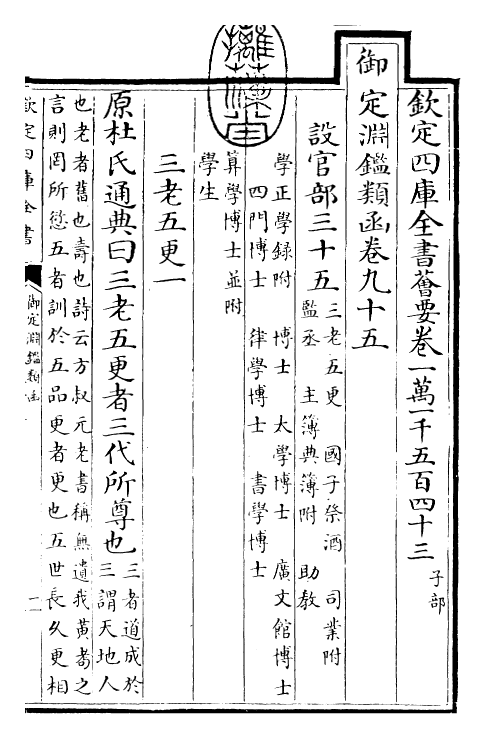 欽定四庫全書薈要卷一萬一千五百四十三 子部
御定淵鑑類函卷九十五
設官部三十五 三老五更 國子祭酒 司業附
監丞 主簿典簿附 助教
學正學録附 博士 太學博士 廣文館博士
四門博士 律學博士 書學博士
算學博士並附
學生
三老五更一
原杜氏通典曰三老五更者三代所尊也 三者道成於
三謂天地人
也老者舊也壽也詩云方叔元老書稱無遺我黄耇之
言則罔所愆五者訓於五品更者更也五世長久更相
欽定四庫全書
御定淵鑑類函
一